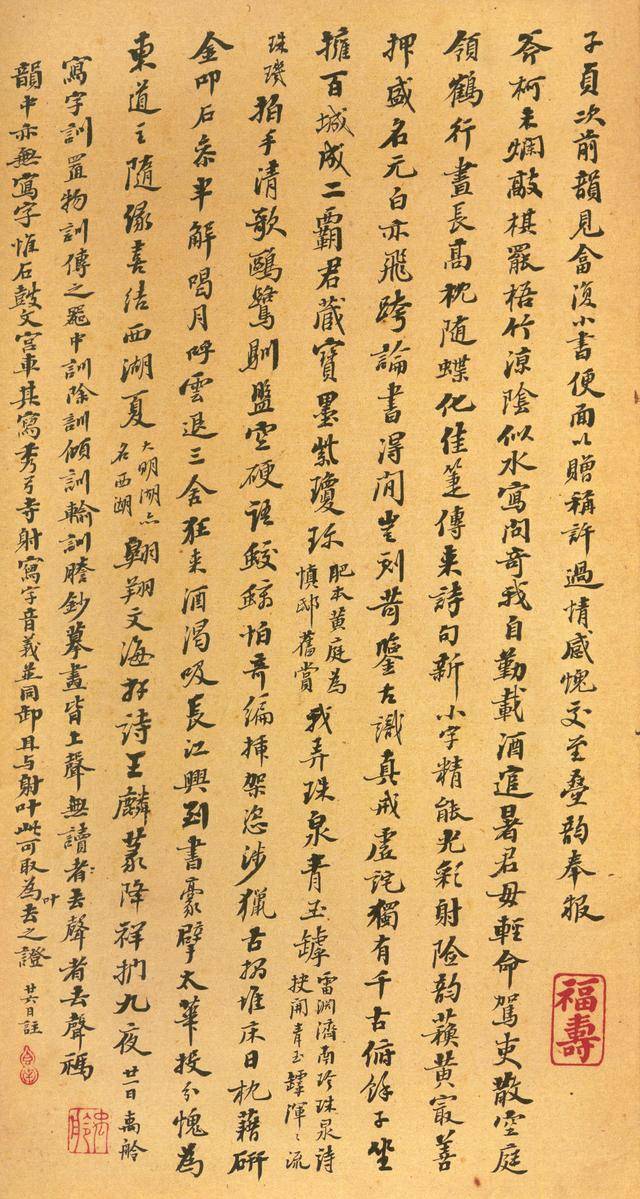 子貞次前韻見畣復小書便面以贈稱許過情感愧交至疊韵奉報
斧柯未爛敲棋罷梧竹涼陰似水寫問奇我自勤載酒逭暑君毋輕命駕吏散空庭
領鶴行晝長高枕隨蝶化佳箑傳來詩句新小字精能光彩射險韵蘇黃最善
押盛名元白亦飛跨論書得閒豈刻苛鑒古識真戒虛詫獨有千古俯餘子坐
擁百城成二霸君藏寶墨紫瓊珍肥本黃庭為慎邸舊賞我弄珠泉青玉罅雷淵濟南珍珠泉詩抉開青玉罅渾〻流
珠璣拍手清歌鷗鷺馴盤空硬語鮫鱷怕奇編插架恣涉獵古搨堆床日枕藉研
金叩石忝半解喝月呼雲退三舍狂來酒渴吸長江興到書豪擘太華投分愧為
東道主隨緣喜結西湖夏大明湖亦名西湖翱翔文海存詩王麟篆降祥捫九夜廿一日禹舲
寫字訓置物訓傳之器中訓除訓傾訓輸訓謄鈔摹畫皆上聲無讀者去聲者去聲禡
韻中亦無寫字惟石鼓文宮車其寫秀弓寺射寫字音義並同卸且与射叶此可取為去之證叶廿六日註
福壽